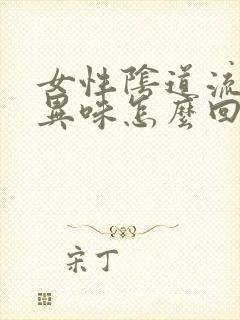 女性陰道流
異味怎麼回
宋丁